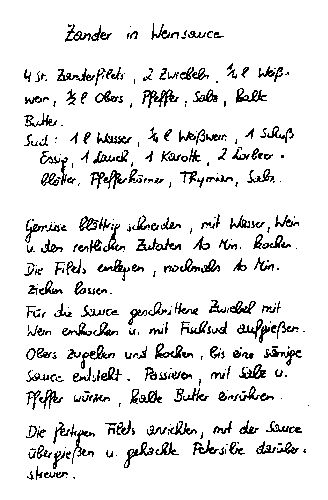 Zander in Weinsauce
4 St. Zanderfilets, 2 Zwiebeln, 1/4 l Weiß-
wein, 1/2 l Obers, Pfeffer, Salz, kalte
Butter.
Sud: 1 l Wasser, 1/4 l Weißwein, 1 Schuß
Essig, 1 Lauch, 1 Karotte, 2 Lorbeer-
blätter, Pfefferkörner, Thymian, Salz.
Gemüse blättrig schneiden, mit Wasser, Wein
u. den restlichen Zutaten 10 Min. kochen.
Die Filets einlegen, nochmals 10 Min.
ziehen lassen.
Für die Sauce geschnittene Zwiebel mit
Wein einkochen u. mit Fischsud aufgießen.
Obers zugeben und kochen, bis eine sämige
Sauce entsteht. Passieren, mit Salz u.
Pfeffer würzen, kalte Butter einrühren.
Die fertigen Filets anrichten, mit der Sauce
übergießen u. gehackte Petersilie darüber-
streuen.